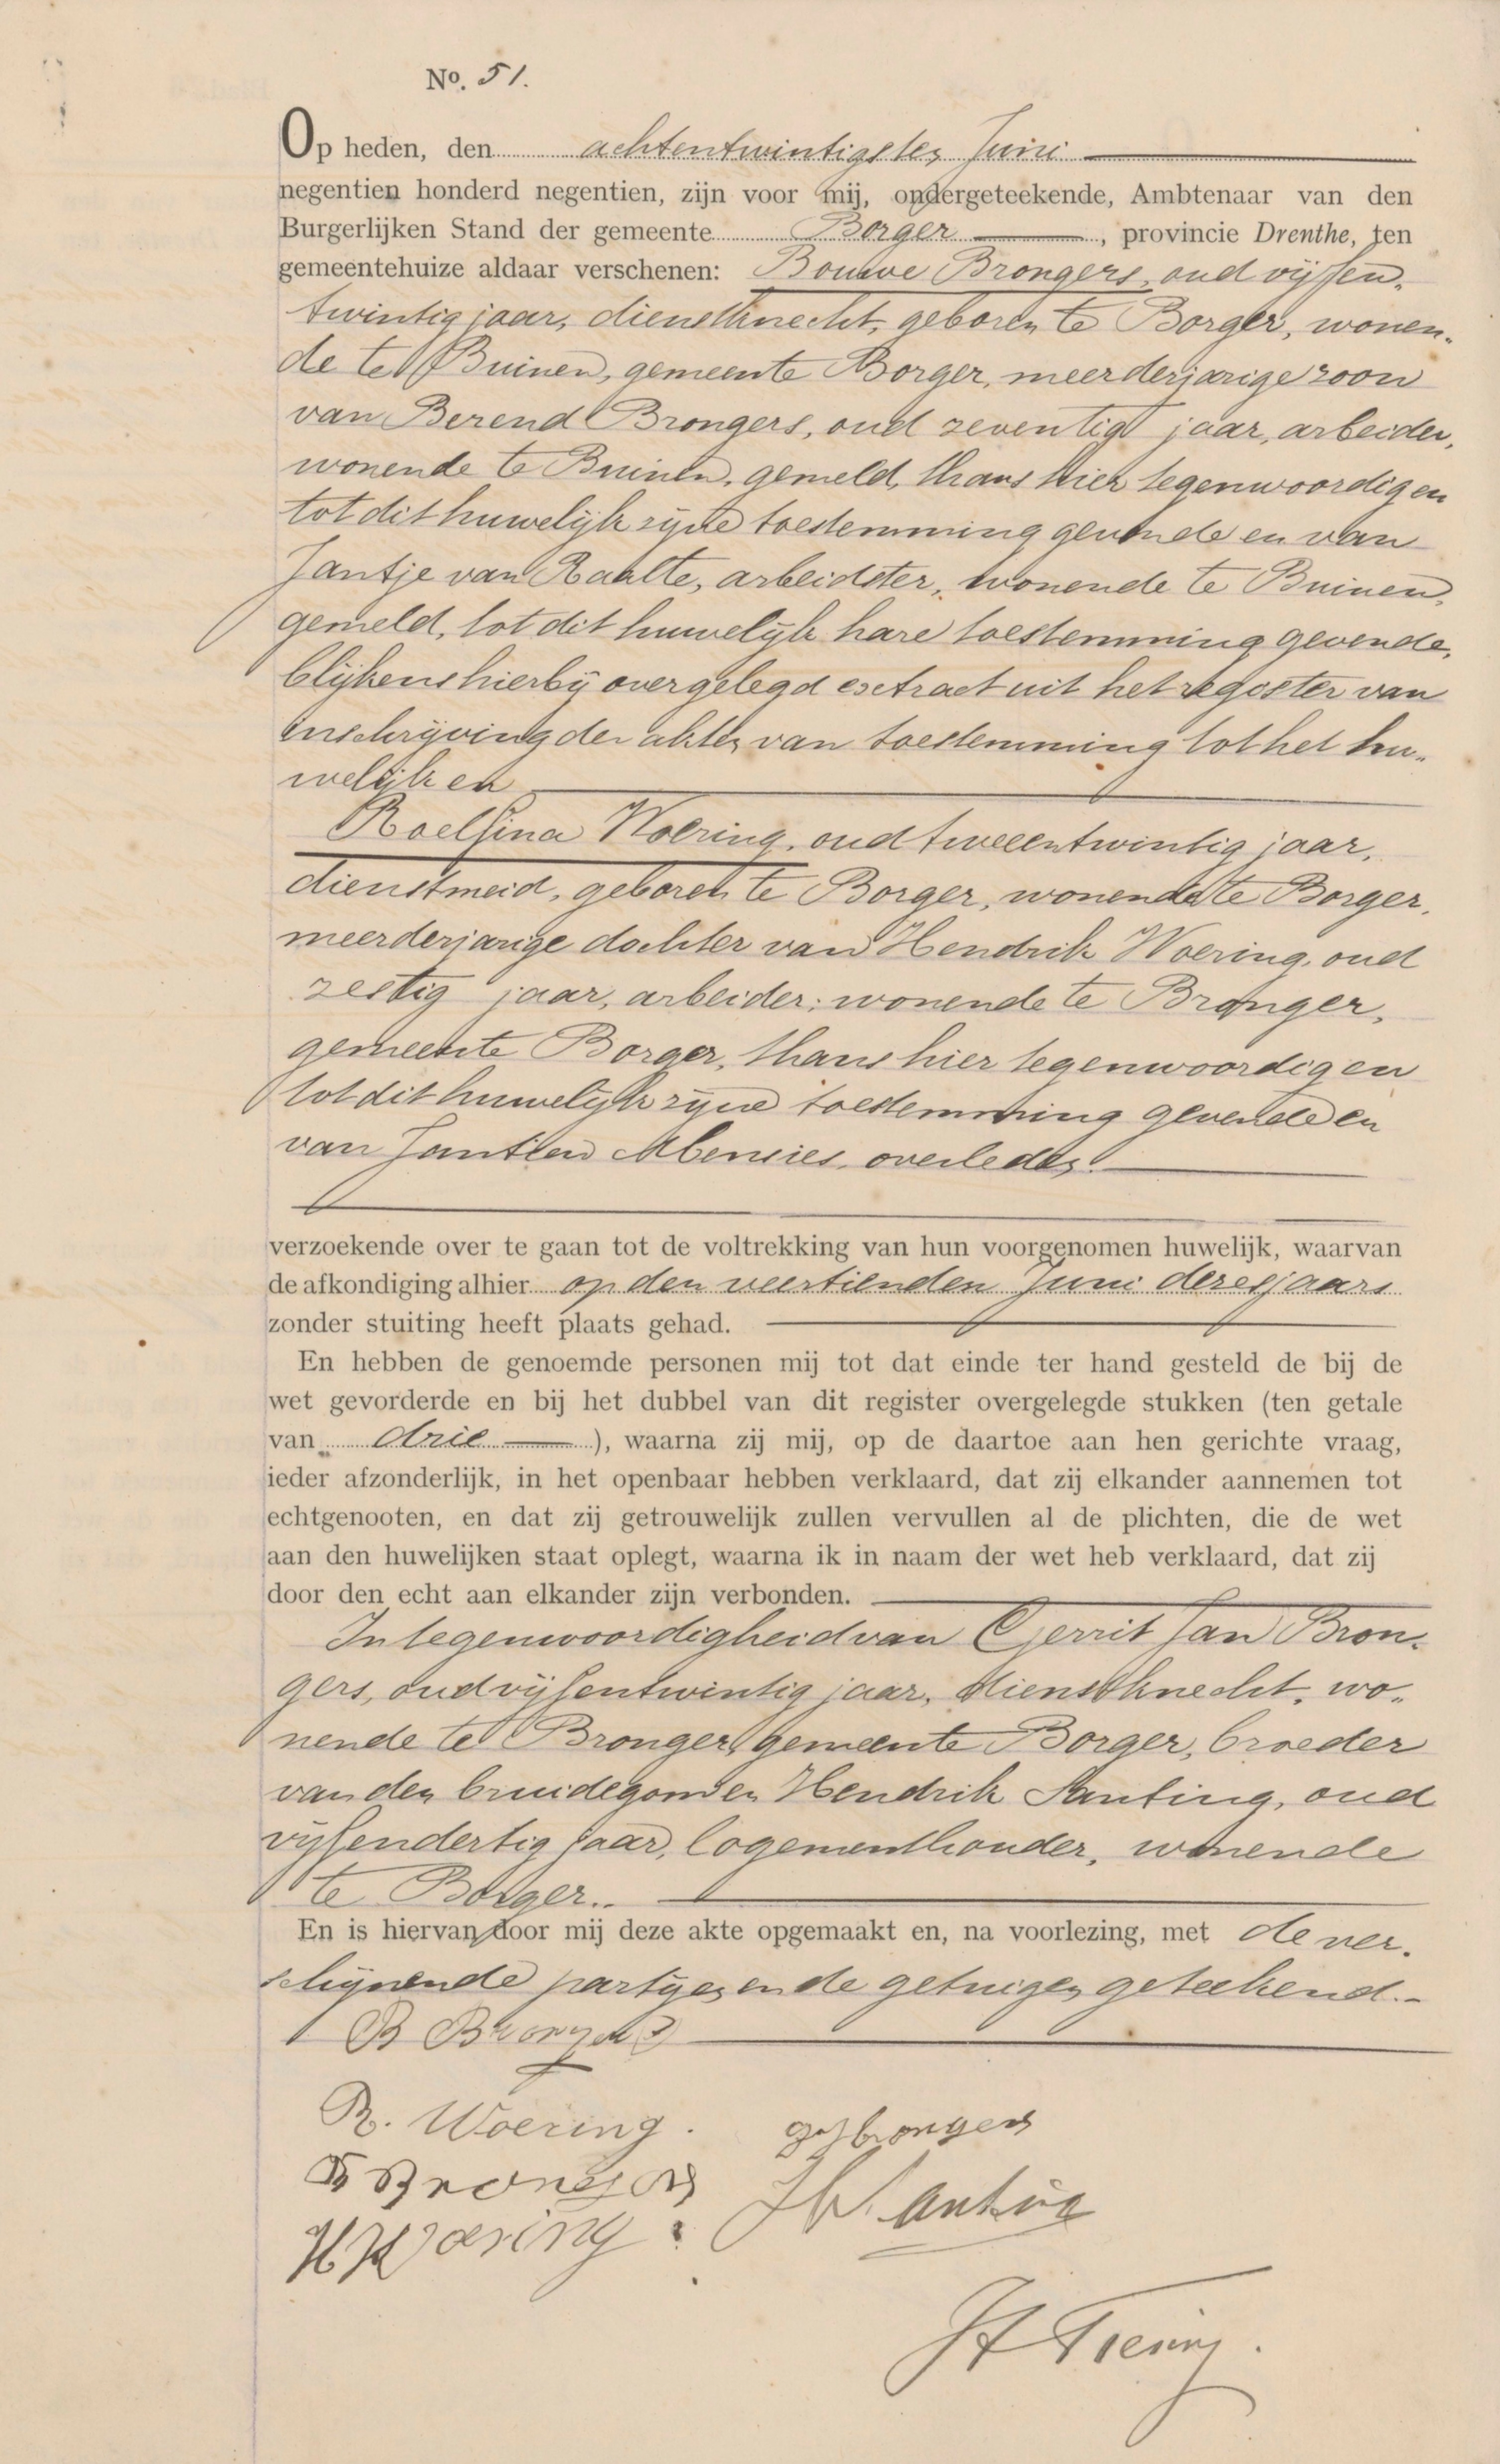 No. 51.
Op heden, den achtentwintigsten Juni
negentien honderd negentien, zijn voor mij, ondergeteekende, Ambtenaar van den
Burgerlijken Stand der gemeente Borger, provincie Drenthe, ten
gemeentehuize aldaar verschenen: Bouwe Brongers, oud vijfen-
twintig jaar, dienstknecht, geboren te Borger, wonen-
de te Buinen, gemeente Borger, meerderjarige zoon
van Berend Brongers, oud zeventig jaar, arbeider,
wonende te Buinen, gemeld, thans hier tegenwoordig en
tot dit huwelijk zijne toestemming gevende en van
Jantje van Raalte, arbeidster, wonende te Buinen,
gemeld, tot dit huwelijk hare toestemming gevende,
blijkens hierbij overgelegd extract uit het register van
inschrijving der akten van toestemming tot het hu-
welijk en
Roelfina Woering, oud tweeentwintig jaar,
dienstmeid, geboren te Borger, wonende te Borger,
meerderjarige dochter van Hendrik Woering, oud
zestig jaar, arbeider, wonende te Bronger,
gemeente Borger, thans hier tegenwoordig en
tot dit huwelijk zijne toestemming gevende en
van Jantien Mensies, overleden.
verzoekende over te gaan tot de voltrekking van hun voorgenomen huwelijk, waarvan
de afkondiging alhier op den veertienden Juni dezes jaars
zonder stuiting heeft plaats gehad.
En hebben de genoemde personen mij tot dat einde ter hand gesteld de bij de
wet gevorderde en bij het dubbel van dit register overgelegde stukken (ten getale
van drie), waarna zij mij, op de daartoe aan hen gerichte vraag,
ieder afzonderlijk, in het openbaar hebben verklaard, dat zij elkander aannemen tot
echtgenooten, en dat zij getrouwelijk zullen vervullen al de plichten, die de wet
aan den huwelijken staat oplegt, waarna ik in naam der wet heb verklaard, dat zij
door den echt aan elkander zijn verbonden.
In tegenwoordigheid van Gerrit Jan Bron-
gers, oud vijfentwintig jaar, dienstknecht, wo-
nende te Bronger, gemeente Borger, broeder
van den bruidegom en Hendrik Santing, oud
vijfendertig jaar, logementhouder, wonende
te Borger.
En is hiervan door mij deze akte opgemaakt en, na voorlezing, met de ver-
schijnende partijen en de getuigen geteekend.-
B Brongers
R. Woering. GJ Brongers
B Brongers H Santing
H Woering.
H Tiesing.